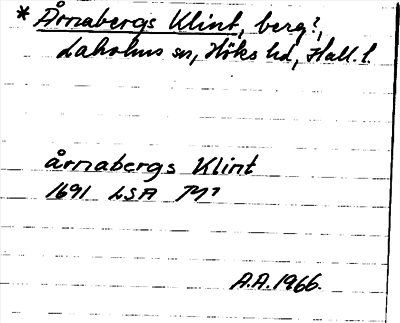 * Årnabergs Klint, berg?,
Laholms sn, Höks hd, Hall. l.
årnabergs Klint
1691 LSA M1
A.A. 1966.